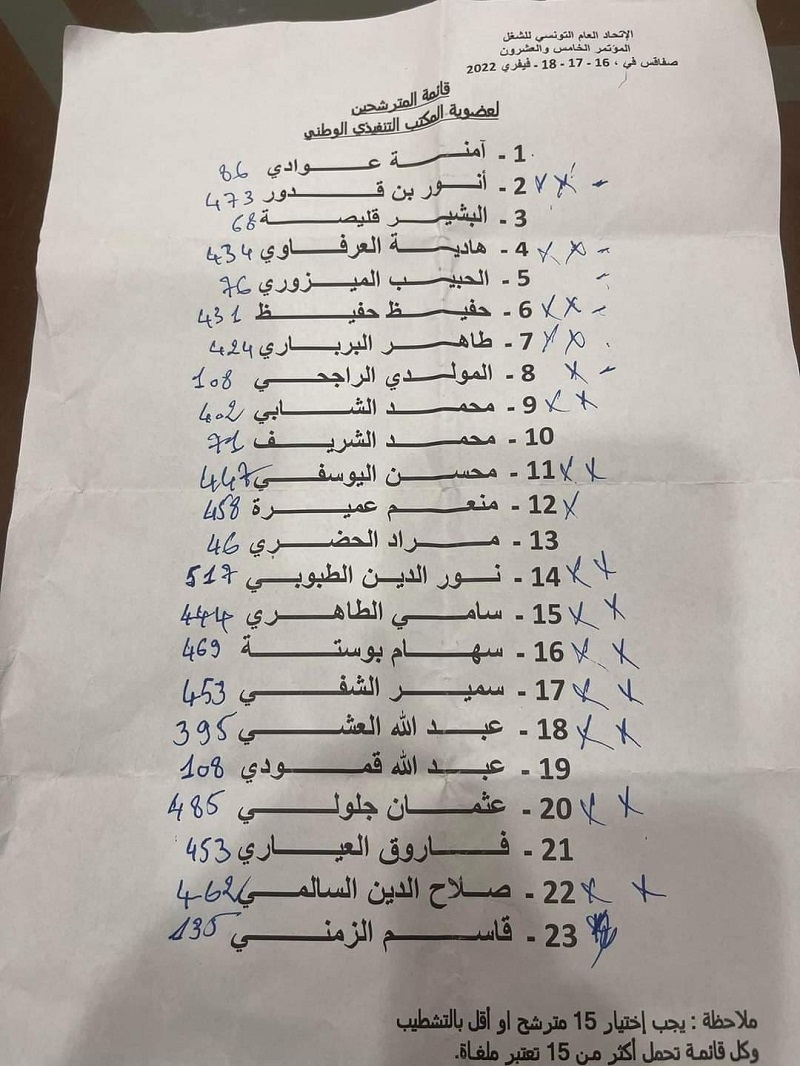 الإتحاد العام التونسي للشغل
المؤتمر الخامس والعشرون
صفاقس في ، 16 - 17 - 18 - فيفري 2022
قائمة المترشحين
لعضوية المكتب التنفيذي الوطني
1 - آمنة عوادي 86
2 - أنور بن قدور 473
3 - البشير قليصة 68
4 - هادية العرفاوي 434
5 - الحبيب الميزوري 76
6 - حفيظ حفيظ 431
7 - طاهر البرباري 424
8 - المولدي الراجحي 108
9 - محمد الشابي 402
10 - محمد الشريف 71
11 - محسن اليوسفي 447
12 - منعم عميرة 458
13 - مراد الحضري 46
14 - نور الدين الطبوبي 517
15 - سامي الطاهري 444
16 - سهام بوستة 469
17 - سمير الشفي 453
18 - عبد الله العشي 395
19 - عبد الله قمودي 108
20 - عثمان جلولي 485
21 - فاروق العياري 453
22 - صلاح الدين السالمي 462
23 - قاسم الزمني 135
ملاحظة : يجب إختيار 15 مترشح او أقل بالتشطيب
وكل قائمة تحمل أكثر من 15 تعتبر ملغاة.